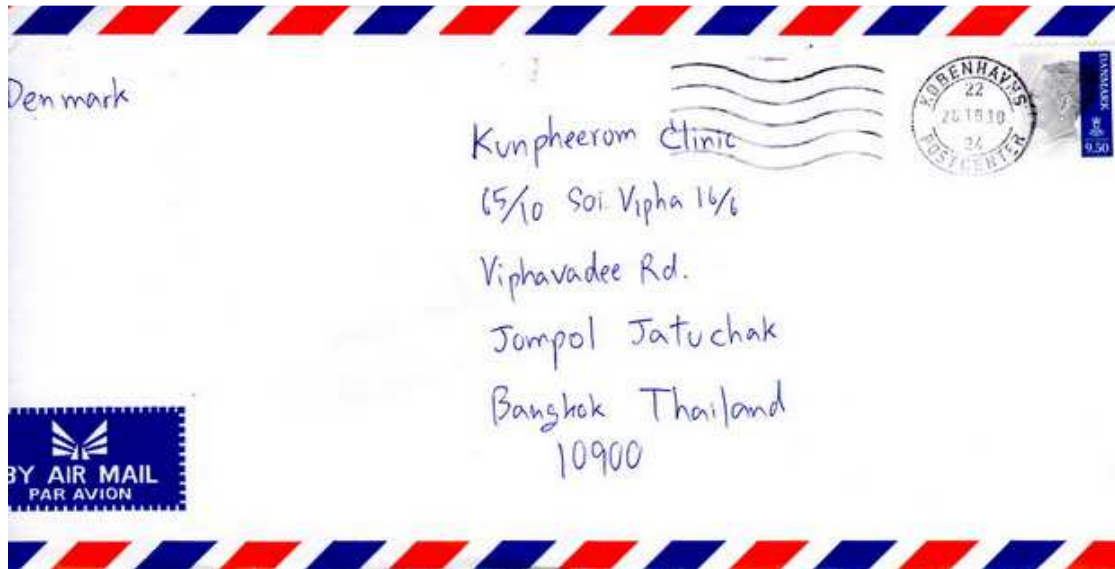 Denmark
KØBENHAVNS
22
POSTCENTER
DANMARK
9.50
Kunpheerom Clinic
65/10 Soi. Vipha 16/6
Viphavadee Rd.
Jompol Jatuchak
Bangkok Thailand
10900
BY AIR MAIL
PAR AVION